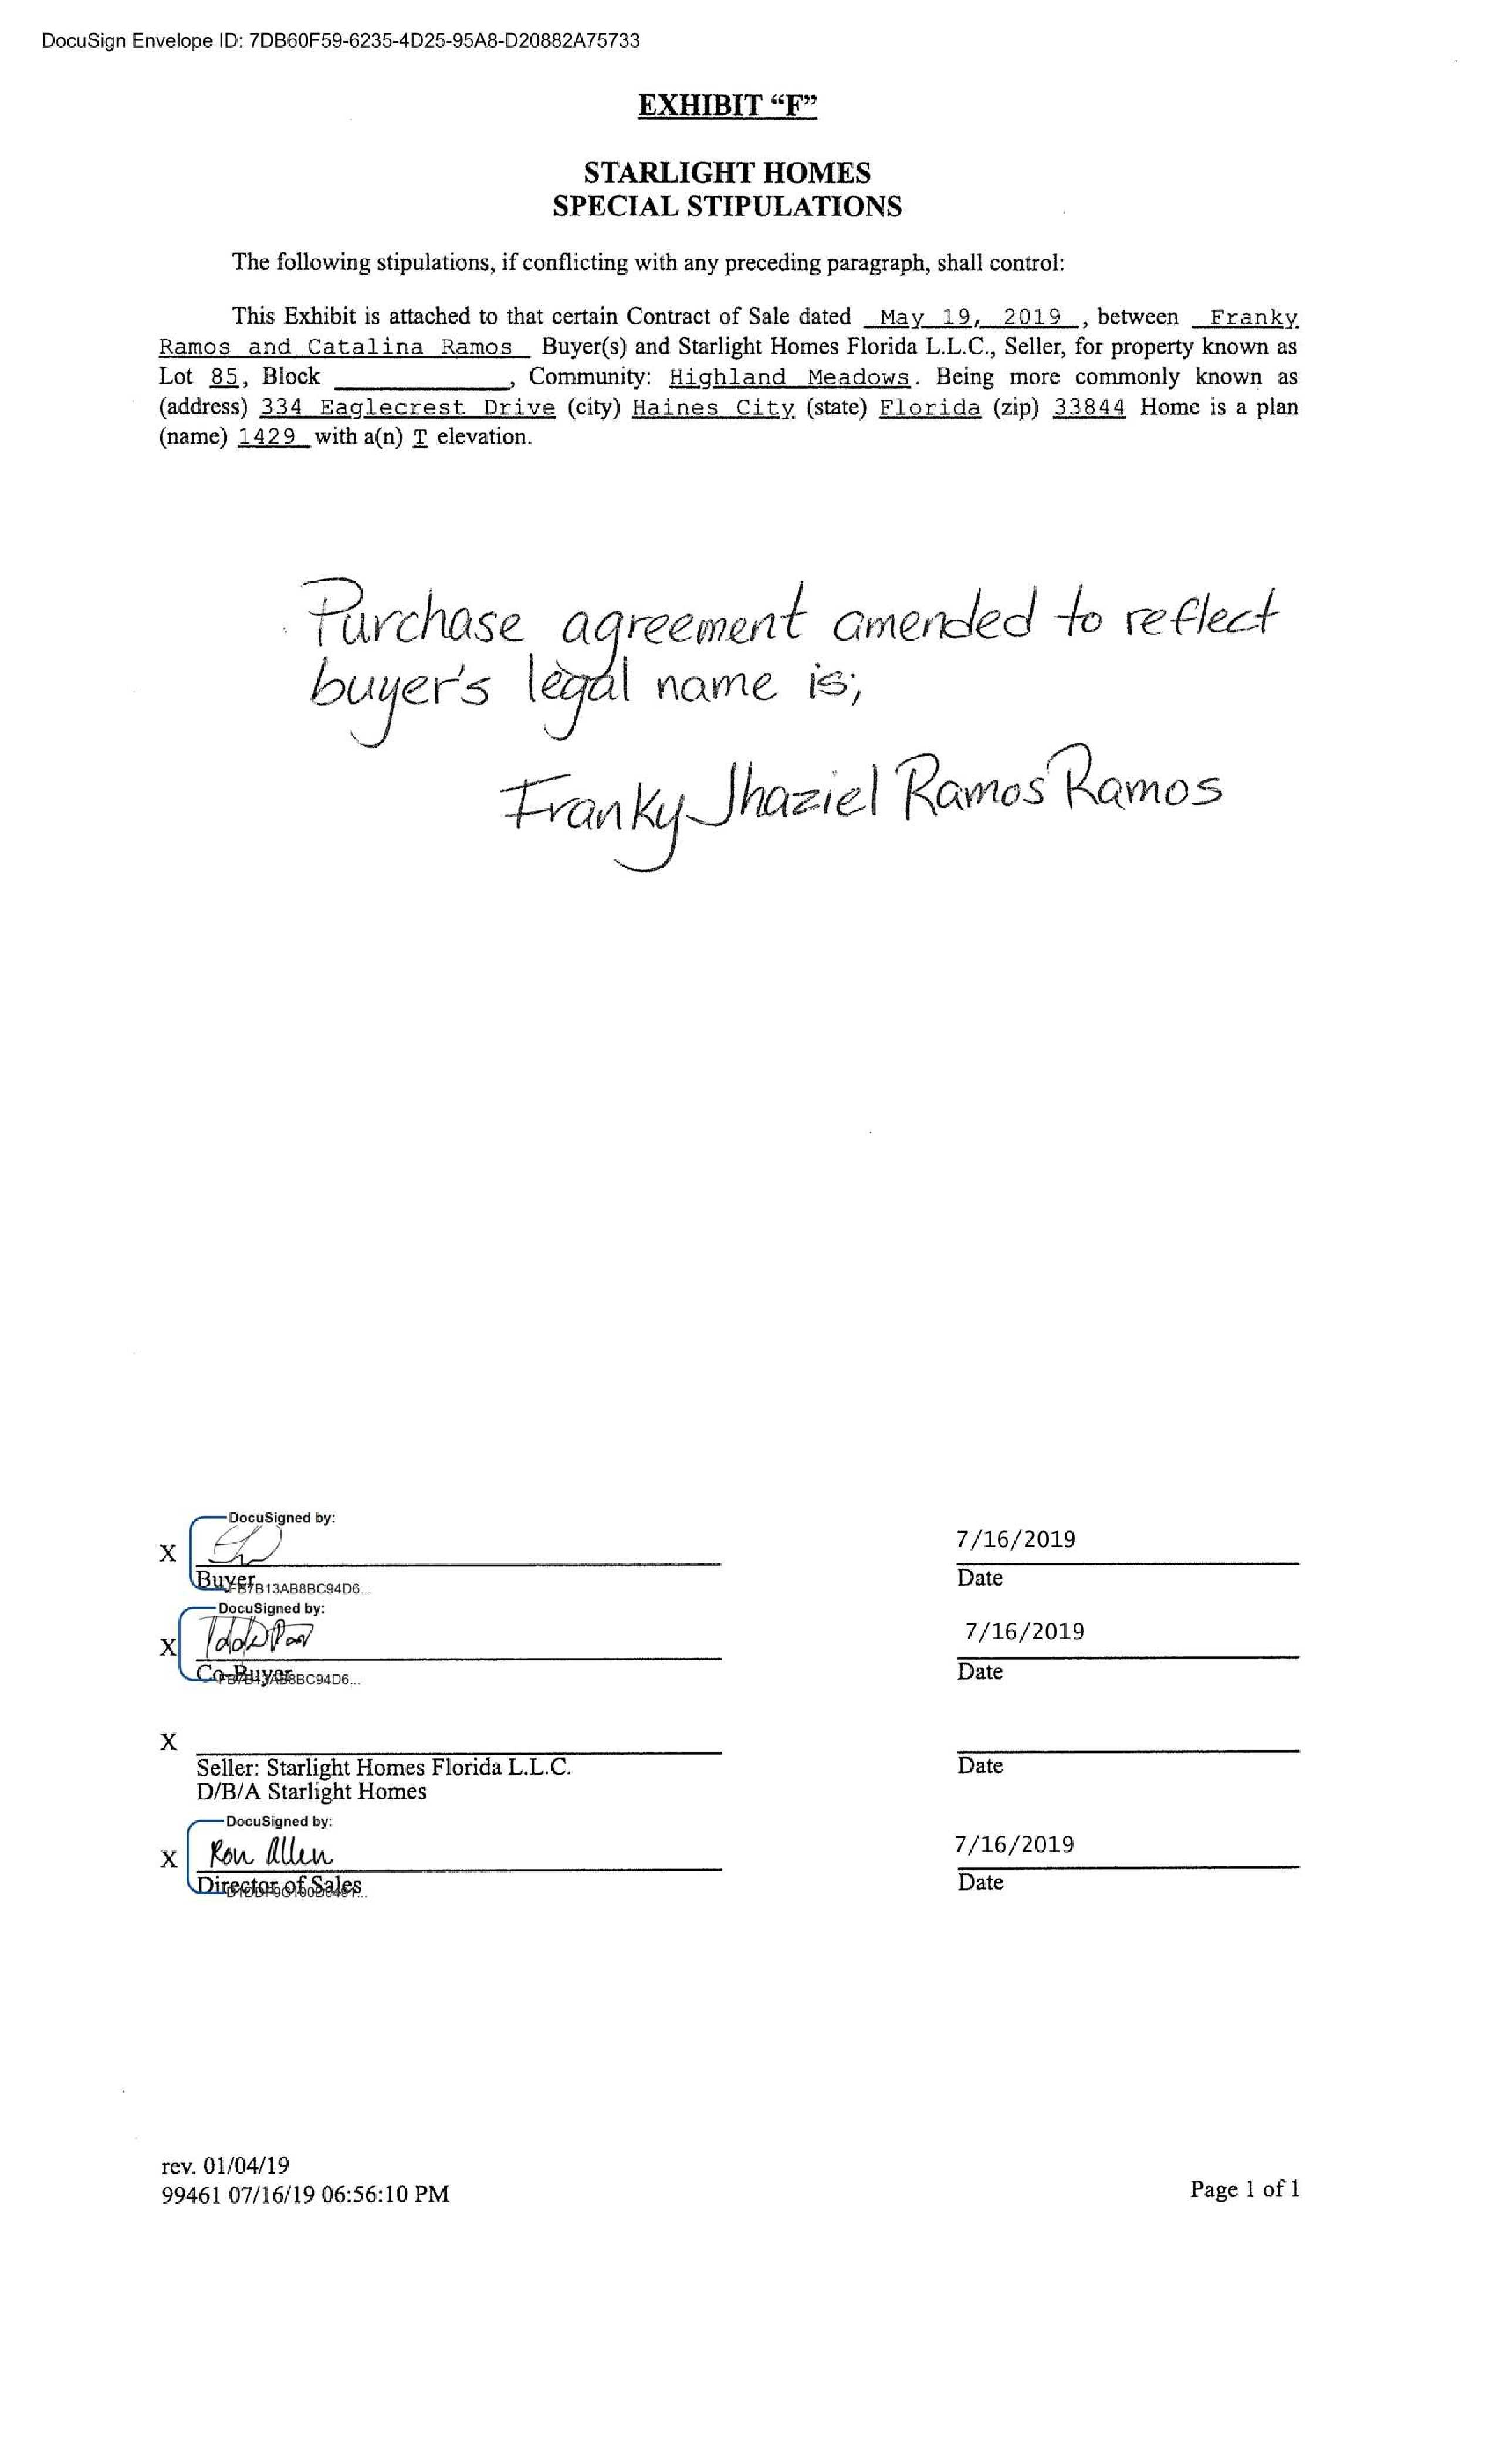 DocuSign Envelope ID: 7DB60F59-6235-4D25-95A8-D20882A75733
EXHIBIT “F”
STARLIGHT HOMES
SPECIAL STIPULATIONS
The following stipulations, if conflicting with any preceding paragraph, shall control:
This Exhibit is attached to that certain Contract of Sale dated May 19, 2019, between Franky
Ramos and Catalina Ramos Buyer(s) and Starlight Homes Florida L.L.C., Seller, for property known as
Lot 85, Block ____________, Community: Highland Meadows. Being more commonly known as
(address) 334 Eaglecrest Drive (city) Haines City (state) Florida (zip) 33844 Home is a plan
(name) 1429 with a(n) T elevation.
Purchase agreement amended to reflect
buyer's legal name is;
Franky Jhaziel Ramos Ramos
DocuSigned by:
7/16/2019
X
Buyer
Date
DocuSigned by:
7/16/2019
X
Co-Buyer
Date
X
Seller: Starlight Homes Florida L.L.C.
Date
D/B/A Starlight Homes
DocuSigned by:
X Ron Allen
7/16/2019
Director of Sales
Date
rev. 01/04/19
99461 07/16/19 06:56:10 PM
Page 1 of 1